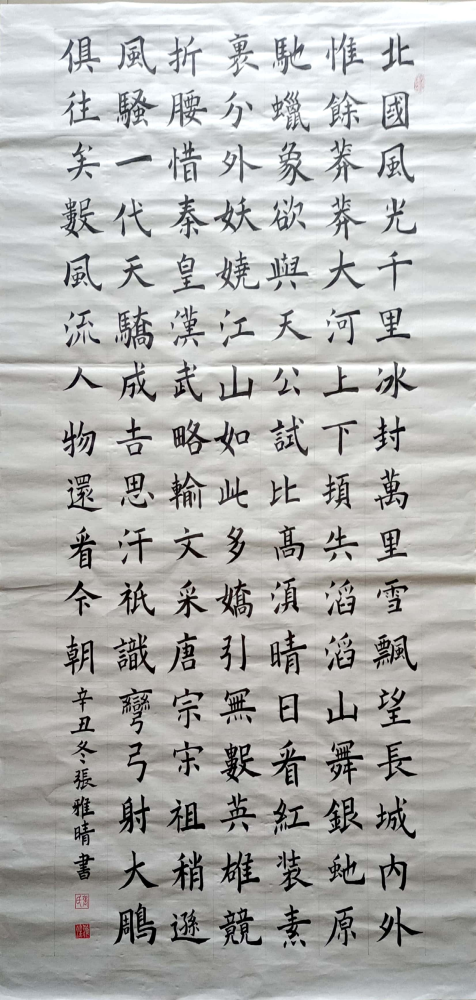 北國風光千里冰封萬里雪飄望長城内外
惟餘莽莽大河上下頓失滔滔山舞銀虵原
馳蠟象欲與天公試比高須晴日看紅裝素
裹分外妖嬈江山如此多嬌引無數英雄競
折腰惜秦皇漢武略輸文采唐宗宋祖稍遜
風騷一代天驕成吉思汗衹識彎弓射大鵰
俱往矣數風流人物還看今朝
辛丑冬張雅晴書